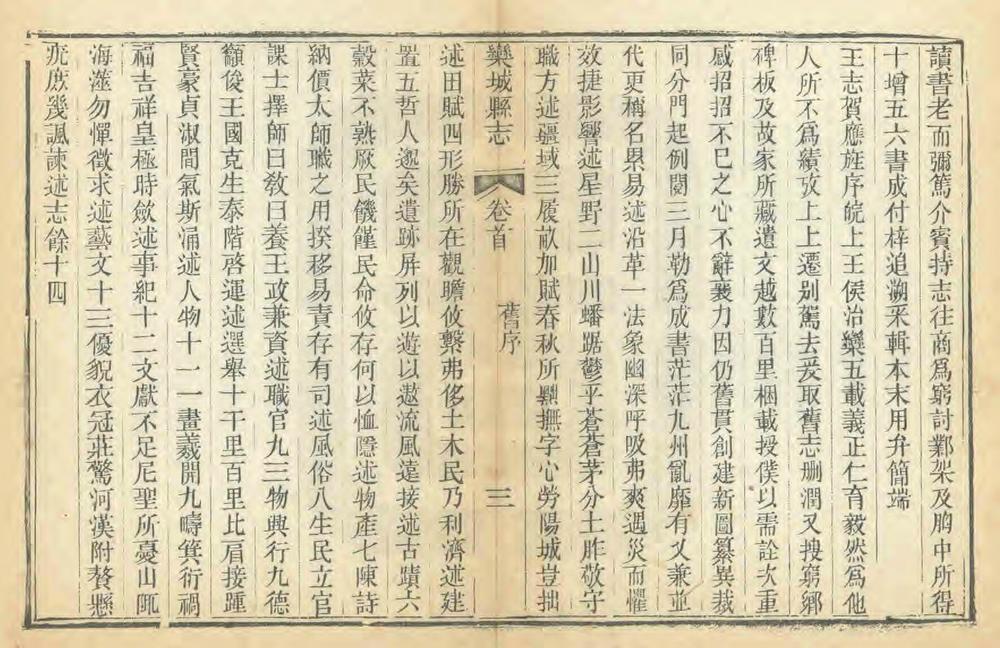 讀書老而彌篤介賓持志往商爲窮討鄴架及胸中所得
十增五六書成付梓追溯采輯本末用弁簡端
王志賀應旌序皖上王侯治欒五載義正仁育毅然爲他
人所不爲績攷上上遷别駕去爰取舊志刪潤又搜窮鄉
碑板及故家所藏遺文越數百里梱載授僕以需詮次重
感招招不已之心不辭襄力因仍舊貫創建新圖纂異裁
同分門起例閱三月勒爲成書茫茫九州亂靡有乂兼並
代更稱名㒷易述沿革一法象幽深呼吸弗爽遇災而懼
效捷影響述星野二山川蟠踞鬱乎蒼蒼茅分土胙敬守
職方述疆域三履畝加賦春秋所鄙撫字心勞陽城豈拙
欒城縣志 卷首 舊序 三
述田賦四形勝所在觀瞻攸繫弗侈土木民乃利濟述建
置五哲人邈矣遺跡屏列以遊以遨流風遠接述古蹟六
穀菜不熟厥民饑饉民命攸存何以恤隱述物產七陳詩
納價太師職之用揆移易責存有司述風俗八生民立官
課士擇師曰敎曰養王政兼資述職官九三物興行九德
籲俊王國克生泰階啓運述選舉十千里百里比肩接踵
賢豪貞淑間氣斯涌述人物十一一畫羲開九疇箕衍禍
福吉祥皇極時斂述事紀十二文獻不足尼聖所憂山陬
海澨勿憚徵求述藝文十三優貌衣冠莊驚河漢附贅懸
疣庶幾諷諫述志餘十四